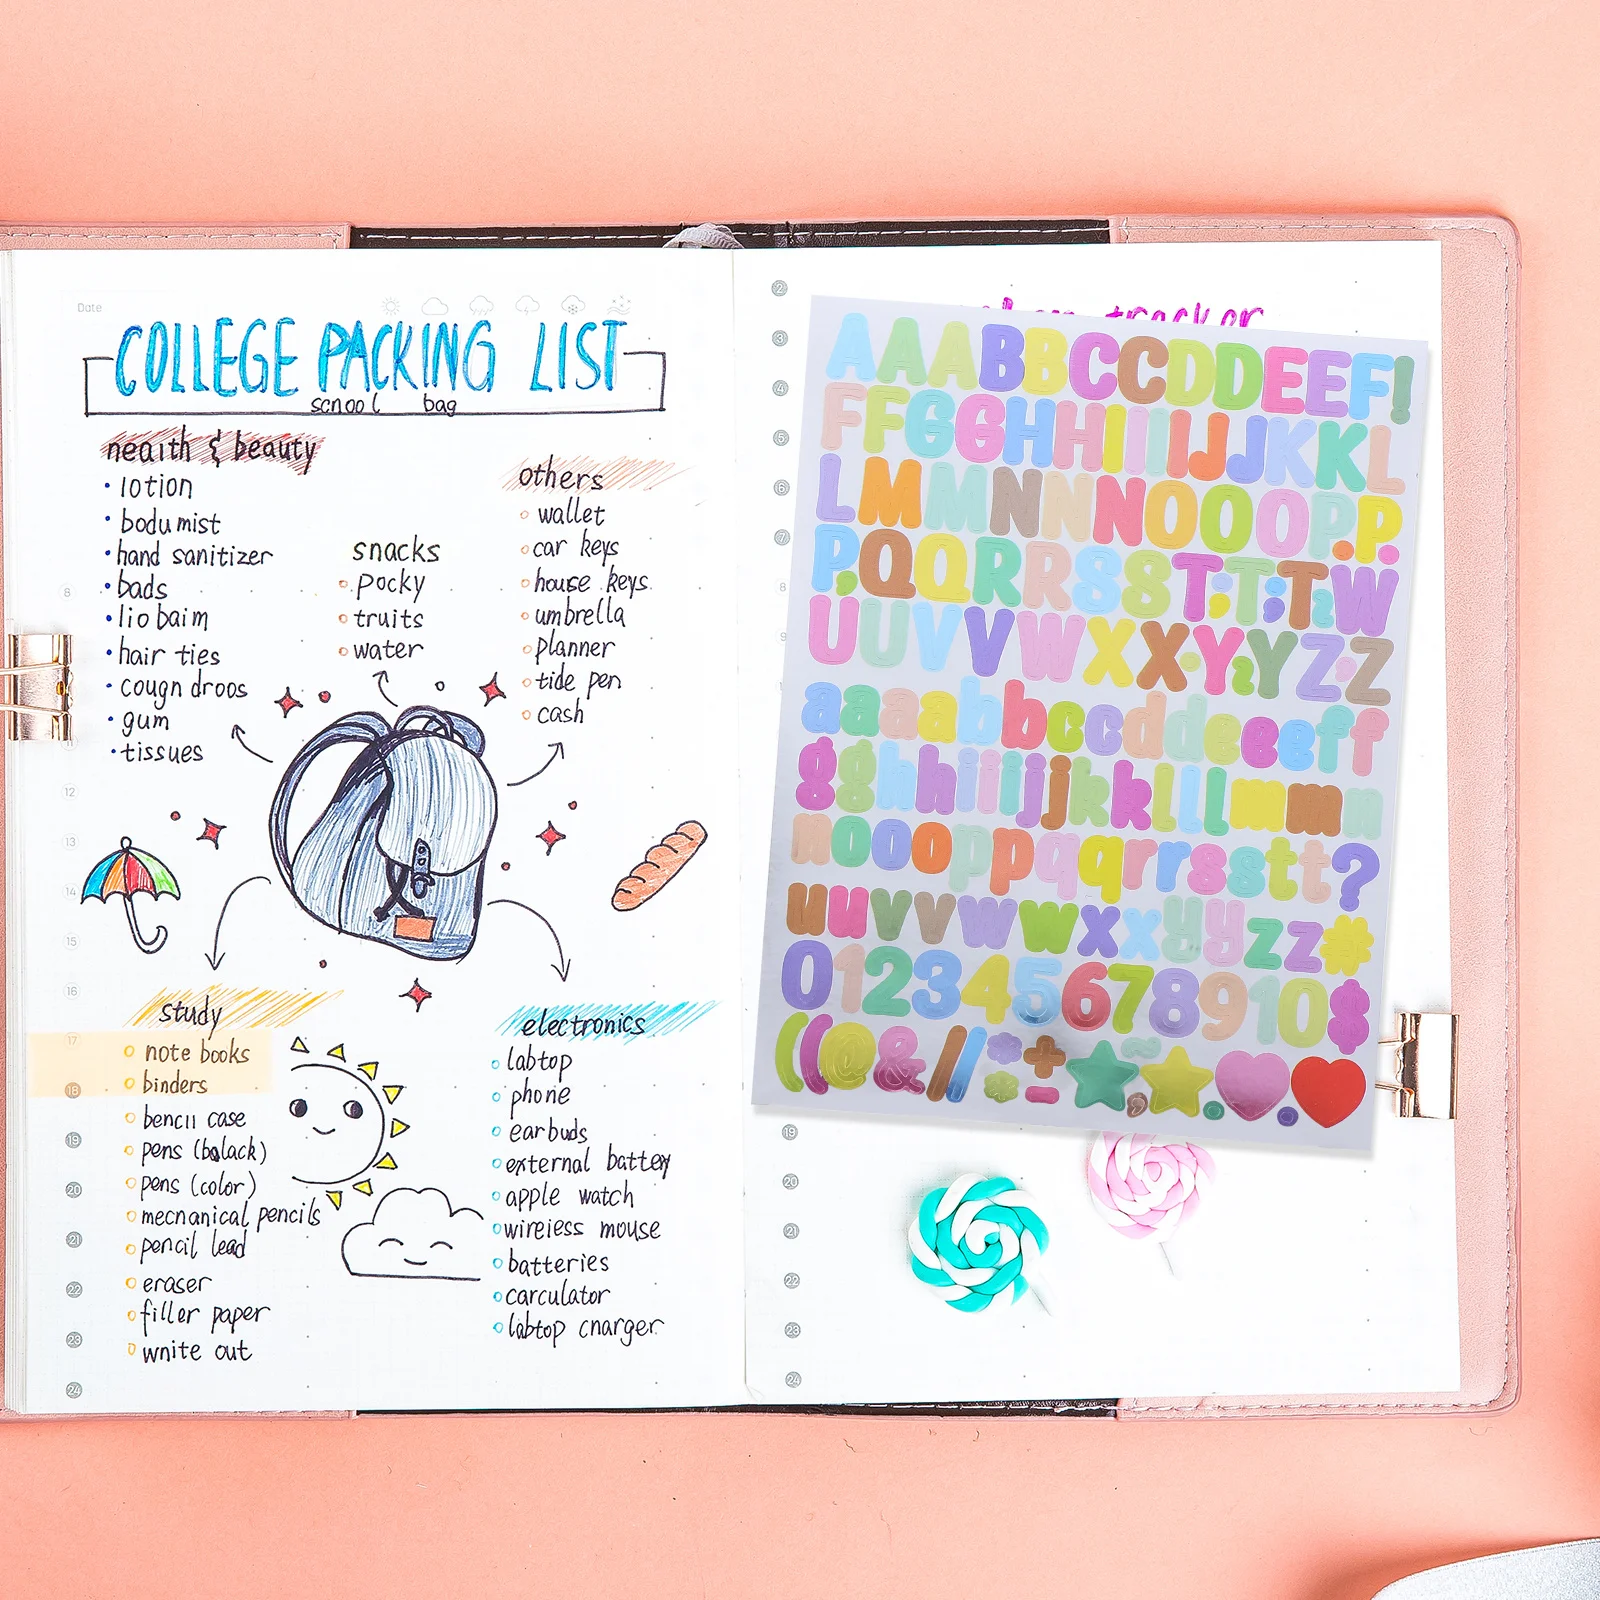 Date
COLLEGE PACKING LIST
scnool bag
neaith & beauty
lotion
bodu mist
hand sanitizer
bads
lio baim
hair ties
cougn droos
gum
tissues
snacks
pocky
truits
water
others
wallet
car keys
house keys
umbrella
planner
tide pen
cash
study
note books
binders
bencil case
pens (balack)
pens (color)
mecnanical pencils
pencil lead
eraser
filler paper
wnite out
electronics
labtop
phone
earbuds
external battey
apple watch
wireiess mouse
batteries
carculator
labtop cnarger
8
12
13
14
15
16
17
18
19
20
21
22
23
24
tracker
2
3
4
5
6
7
8
9
AAABBCCDDEEF!
FFGGHHIIIIJJKKL
LMMNNNNOOOOPP.P.
P,QQRRSST;T;T2W
UUVVWXX·Y2YZ·Z
aaaabbccddeeeff
gghhiiijjkkllllmmn
noooppqqrrsstt?
uuvvwwxxyyzz*
0123456789108
((@&//
19
20
21
22
23
24